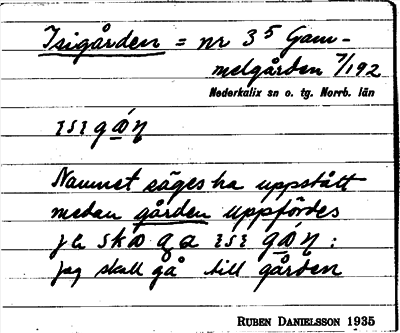 Isigården = nr 3⁵ Gam-
melgården 7/192
Nederkalix sn o. tg. Norrb. län
ısı gǻŋ
Namnet säges ha uppstått
medan gården uppfördes
ısı gǻŋ :
jag skall gå till gården
RUBEN DANIELSSON 1935